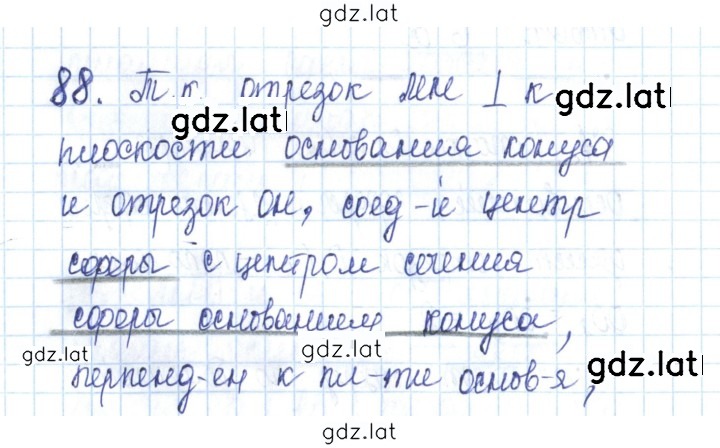 gdz.lat
88. Т.к. отрезок МН ⊥ к gdz.lat
gdz.lat
плоскости основания конуса
и отрезок ОН, соед-й центр
сферы с центром сечения
сферы основанием конуса,
gdz.lat gdz.lat gdz.lat
перпенд-ен к пл-ти основ-я,
gdz.lat